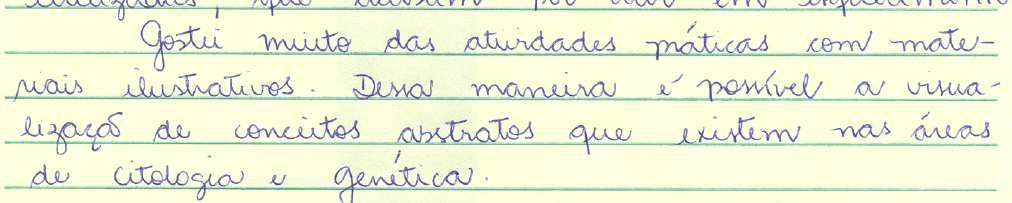 Gostei muito das atividades práticas com mate-
riais ilustrativos. Dessa maneira é possível a visua-
lização de conceitos abstratos que existem nas áreas
de citologia e genética.